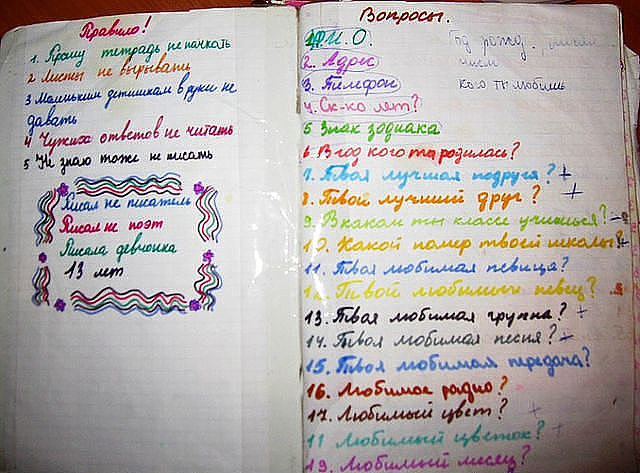 Правило!
1. Прошу тетрадь не пачкать
2 Листы не вырывать
3 Маленьким детишкам в руки не
давать
4 Чужих ответов не читать
5 Не знаю тоже не писать
Писал не писатель
Писал не поэт
Писала девчонка
13 лет
Вопросы.
1 Ф.И.О.
2. Адрес
3. Телефон
4. Ск-ко лет?
5 Знак зодиака
6 В год кого ты родилась?
7. Твоя лучшая подруга? +
8. Твой лучший друг? +
9. В каком ты классе учишься?
10. Какой номер твоей школы? +
11. Твоя любимая певица?
12. Твой любимый певец?
13. Твоя любимая группа? +
14. Твоя любимая песня? +
15. Твоя любимая передача?
16. Любимое радио?
17. Любимый цвет? +
11 Любимый цветок? +
19. Любимый месяц?
Год рожд.
кого ты любишь